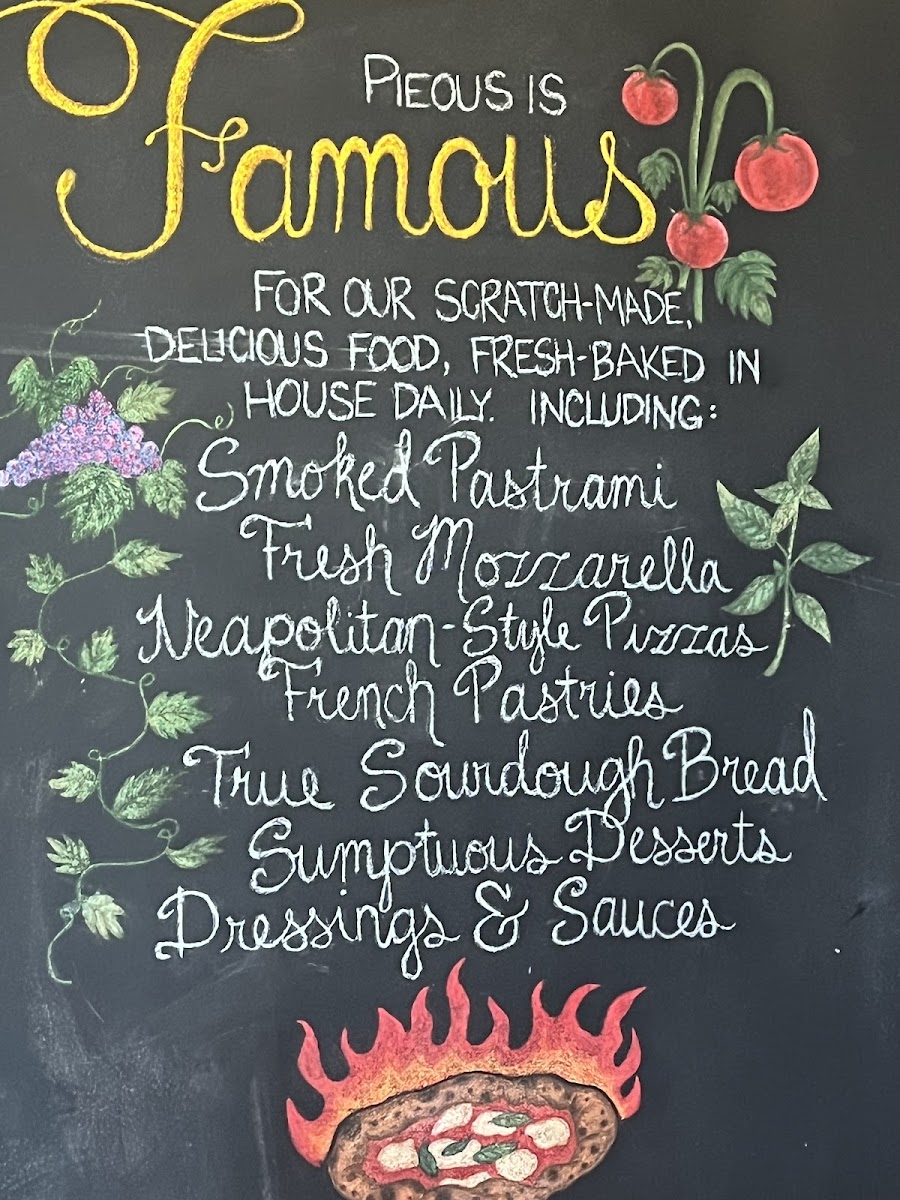 PIEOUS IS
Famous
FOR OUR SCRATCH-MADE,
DELICIOUS FOOD, FRESH-BAKED IN
HOUSE DAILY. INCLUDING:
Smoked Pastrami
Fresh Mozzarella
Neapolitan-Style Pizzas
French Pastries
True Sourdough Bread
Sumptuous Desserts
Dressings & Sauces